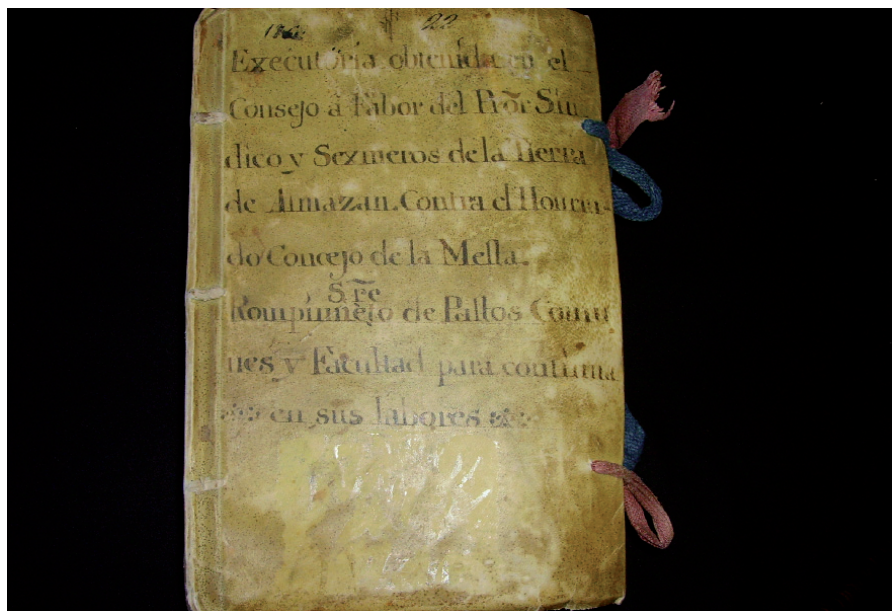 22
Executoria obtenida en el
Consejo â Fabor del Pror̃ Sin
dico y Sexmeros de la Tierra
de Almazan. Contra el Honrra-
do Concejo de la Mesta.
Sr̃e
Rompimiẽto de Pastos Comu
nes y Facultad para continua
en sus labores